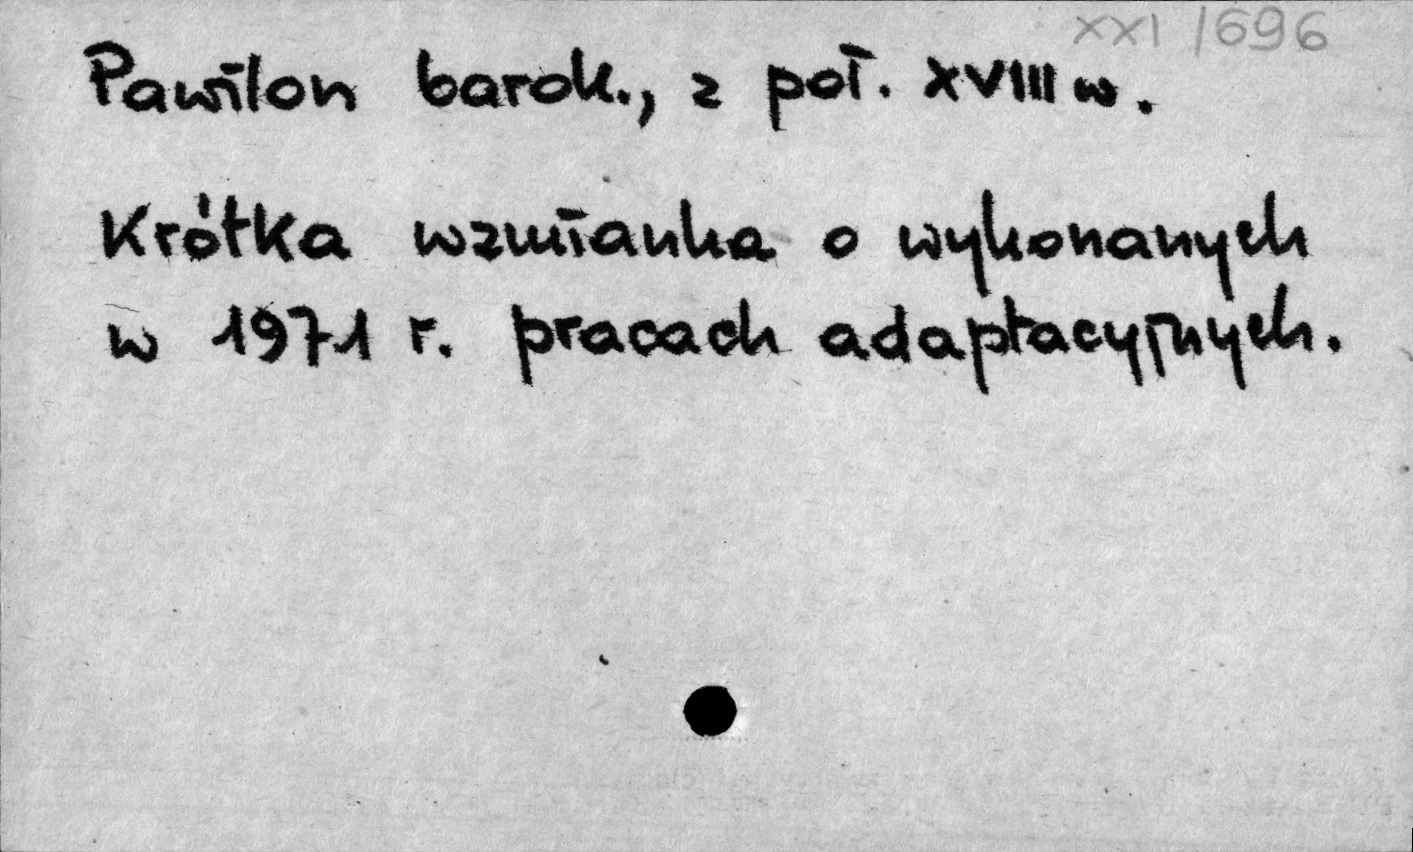 XXI /696
Pawilon barok., z poł. XVIII w.
Krótka wzmianka o wykonanych
w 1971 r. pracach adaptacyjnych.